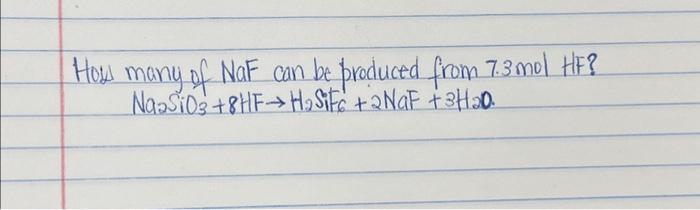 How many of NaF can be produced from 7.3 mol HF?
Na₂SiO₃ + 8HF → H₂SiF₆ + 2NaF + 3H₂O.